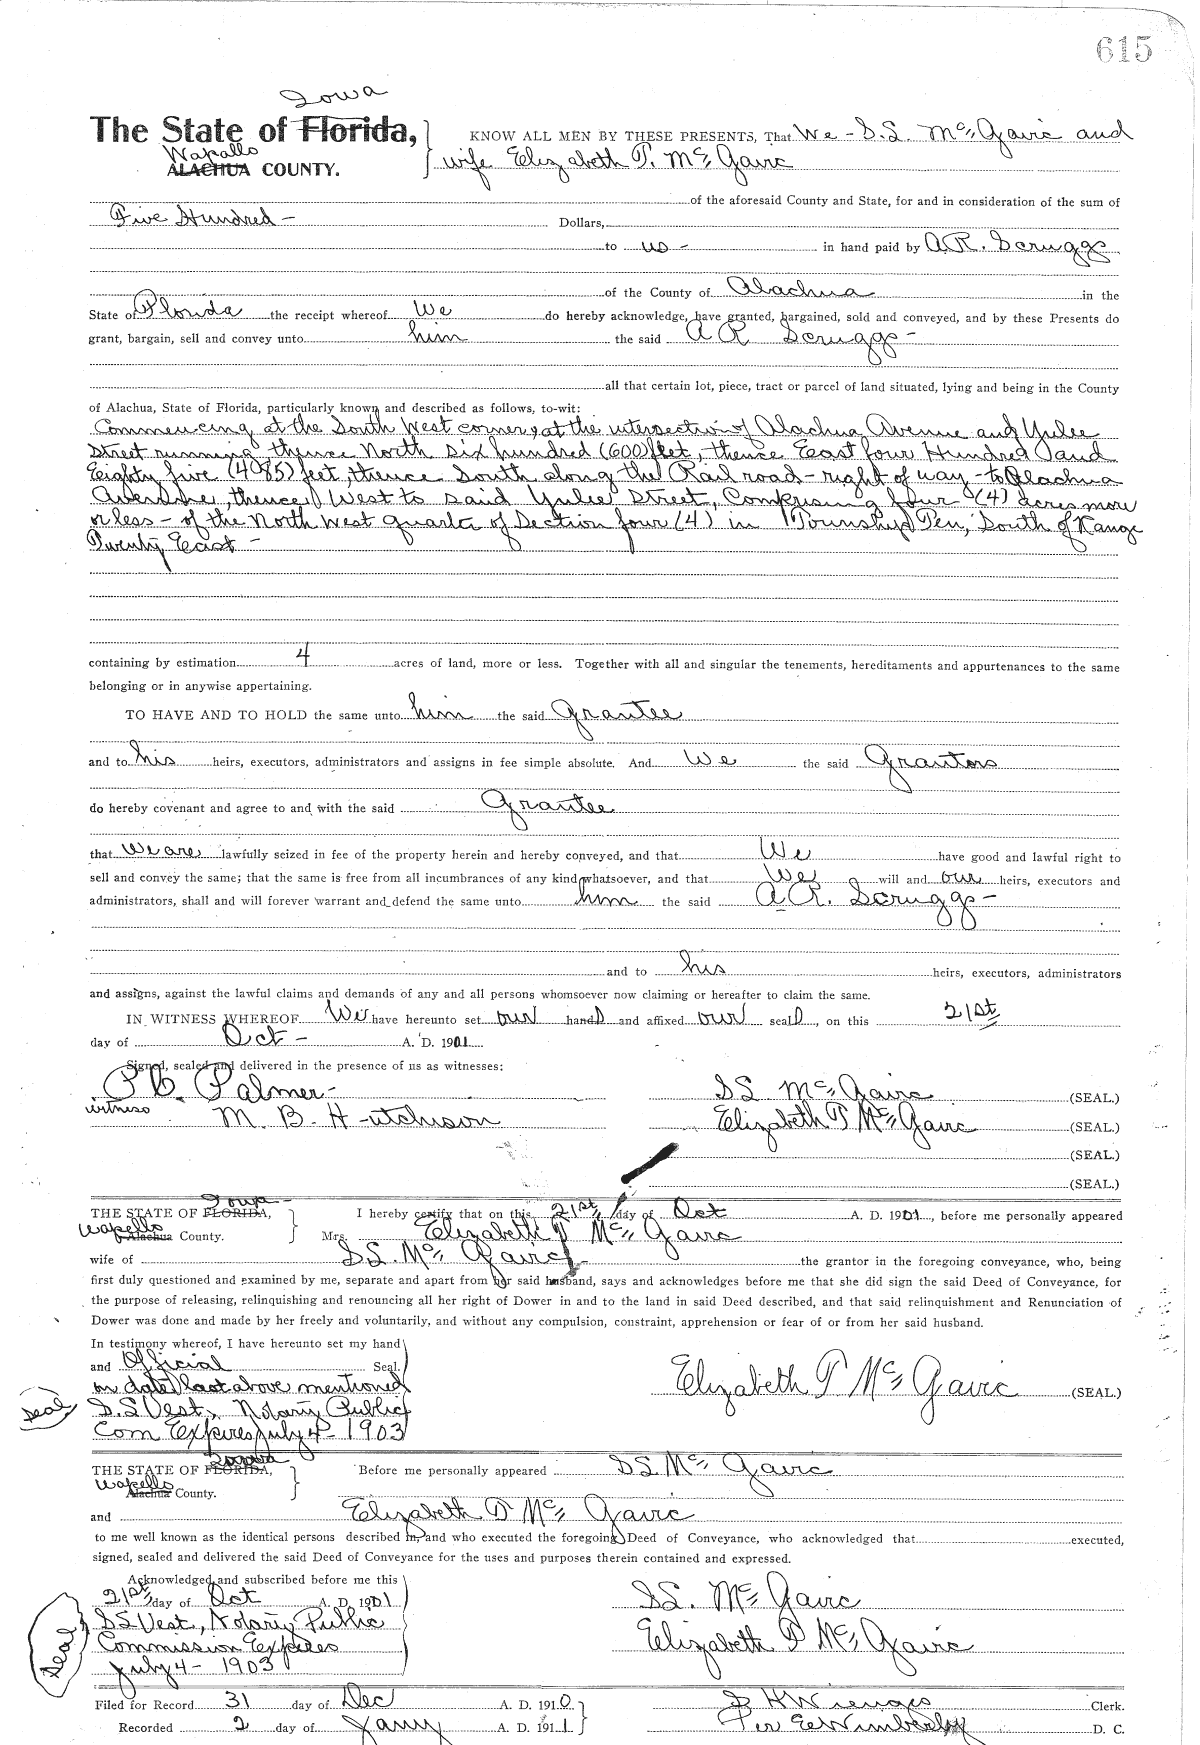 615
Iowa
The State of Florida, KNOW ALL MEN BY THESE PRESENTS, That We - S.S. McGavic and
Wapello
ALACHUA COUNTY. wife Elizabeth P. McGavic
of the aforesaid County and State, for and in consideration of the sum of
Five Hundred - Dollars,
to us - in hand paid by A.R. Scruggs
of the County of Alachua in the
State of Florida the receipt whereof We do hereby acknowledge, have granted, bargained, sold and conveyed, and by these Presents do
grant, bargain, sell and convey unto him the said A R Scruggs -
all that certain lot, piece, tract or parcel of land situated, lying and being in the County
of Alachua, State of Florida, particularly known and described as follows, to-wit:
Commencing at the South West corner, at the intersection of Alachua Avenue and Yulee
Street running thence North six hundred (600) feet, thence East four Hundred and
Eighty five (485) feet, thence South along the Rail road - right of way - to Alachua
Avenue, thence West to said Yulee Street, Comprising four (4) acres more
or less - of the North West quarter of Section four (4) in Township Ten, South of Range
Twenty East -
containing by estimation 4 acres of land, more or less. Together with all and singular the tenements, hereditaments and appurtenances to the same
belonging or in anywise appertaining.
TO HAVE AND TO HOLD the same unto him the said grantee
and to his heirs, executors, administrators and assigns in fee simple absolute. And We the said Grantors
do hereby covenant and agree to and with the said Grantee
that We are lawfully seized in fee of the property herein and hereby conveyed, and that We have good and lawful right to
sell and convey the same; that the same is free from all incumbrances of any kind whatsoever, and that We will and our heirs, executors and
administrators, shall and will forever warrant and defend the same unto him the said A.R. Scruggs -
and to his heirs, executors, administrators
and assigns, against the lawful claims and demands of any and all persons whomsoever now claiming or hereafter to claim the same.
IN WITNESS WHEREOF We have hereunto set our hands and affixed our seals, on this 21st
day of Oct - A. D. 1901
Signed, sealed and delivered in the presence of us as witnesses:
P.C. Palmer - SS McGavic (SEAL.)
witness M. B. Hutchison Elizabeth P McGavic (SEAL.)
(SEAL.)
(SEAL.)
Iowa -
THE STATE OF FLORIDA, I hereby certify that on this 21st day of Oct A. D. 1901, before me personally appeared
Wapello
Alachua County. Mrs. Elizabeth P McGavic
wife of SS. McGavic the grantor in the foregoing conveyance, who, being
first duly questioned and examined by me, separate and apart from her said husband, says and acknowledges before me that she did sign the said Deed of Conveyance, for
the purpose of releasing, relinquishing and renouncing all her right of Dower in and to the land in said Deed described, and that said relinquishment and Renunciation of
Dower was done and made by her freely and voluntarily, and without any compulsion, constraint, apprehension or fear of or from her said husband.
In testimony whereof, I have hereunto set my hand
and Official Seal. Elizabeth P McGavic (SEAL.)
on date last above mentioned
Seal S.S Vest, Notary Public
Com Expires July 4 - 1903
Iowa
THE STATE OF FLORIDA, Before me personally appeared SS McGavic
Wapello
Alachua County.
and Elizabeth P McGavic
to me well known as the identical persons described in, and who executed the foregoing Deed of Conveyance, who acknowledged that executed,
signed, sealed and delivered the said Deed of Conveyance for the uses and purposes therein contained and expressed.
Acknowledged and subscribed before me this
21st day of Oct A. D. 1901 SS. McGavic
Seal SS Vest, Notary Public Elizabeth P McGavic
Commission Expires
July 4 - 1903
Filed for Record 31 day of Dec A. D. 1910 Clerk.
Recorded 2 day of Jany A. D. 1911 Per E Wimberly D. C.